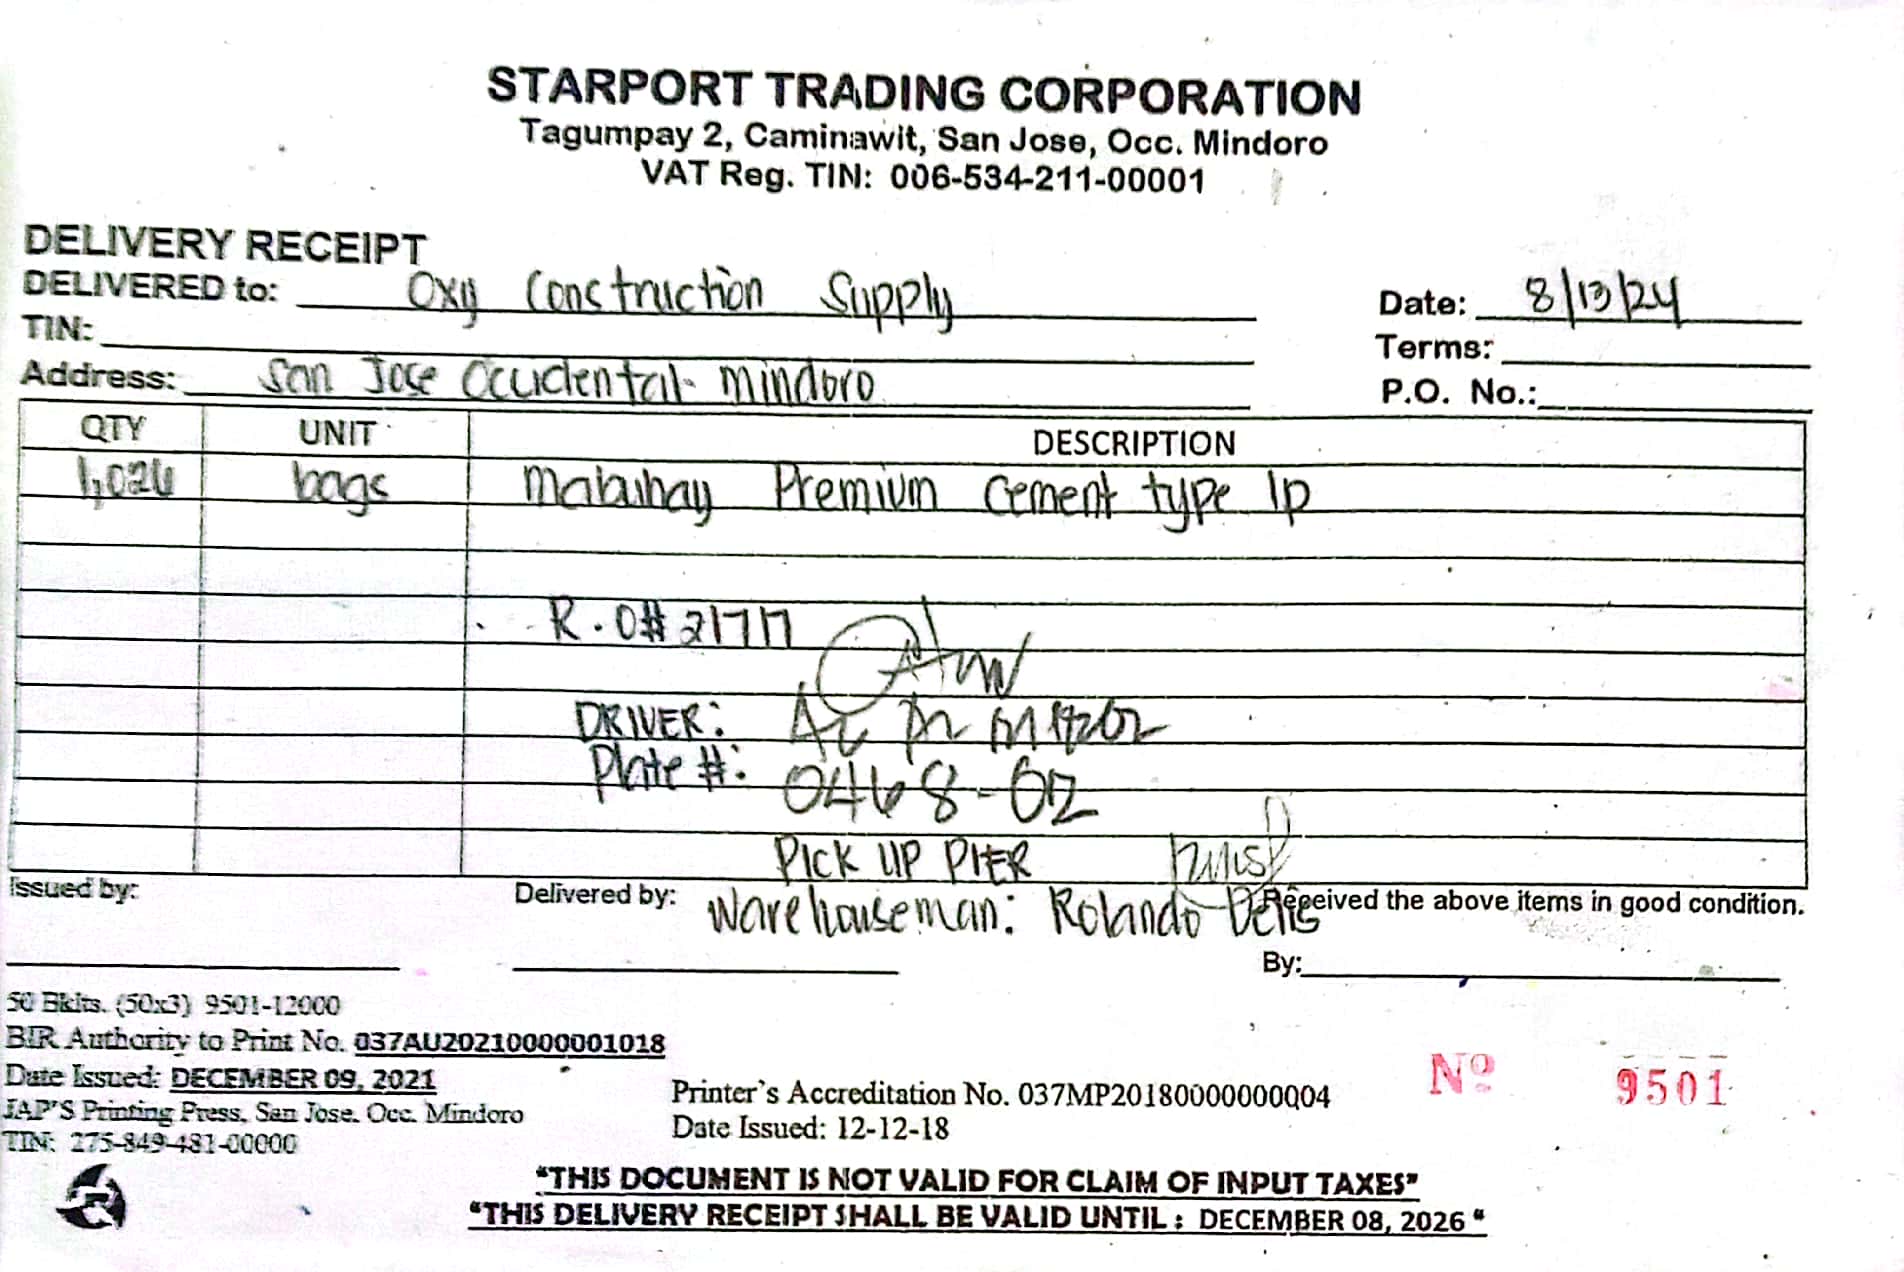 STARPORT TRADING CORPORATION
Tagumpay 2, Caminawit, San Jose, Occ. Mindoro
VAT Reg. TIN: 006-534-211-00001
DELIVERY RECEIPT
DELIVERED to: Oxy Construction Supply
Date: 8/13/24
TIN:
Terms:
Address: San Jose Occidental Mindoro
P.O. No.:
QTY UNIT DESCRIPTION
bags Premium Cement type 1p
R.O# 21717
DRIVER:
Plate #: 0468-02
PICK UP PIER
Issued by:
Delivered by: Warehouseman: Rolando Delis
Received the above items in good condition.
By:
50 Bklts. (50x3) 9501-12000
BIR Authority to Print No. 037AU20210000001018
Date Issued: DECEMBER 09, 2021
JAP'S Printing Press, San Jose. Occ. Mindoro
TIN: 275-849-481-00000
Printer's Accreditation No. 037MP20180000000004
Date Issued: 12-12-18
Nº 9501
"THIS DOCUMENT IS NOT VALID FOR CLAIM OF INPUT TAXES"
"THIS DELIVERY RECEIPT SHALL BE VALID UNTIL : DECEMBER 08, 2026 "